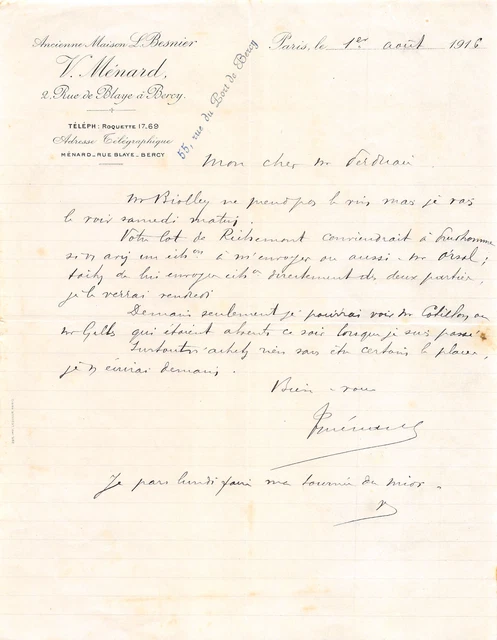 Ancienne Maison L. Besnier
V. Ménard,
2. Rue de Blaye à Bercy.
TÉLÉPH: ROQUETTE 17.69
Adresse Télégraphique
MÉNARD_RUE BLAYE_BERCY
55, rue du Port de Bercy
Paris, le 1er août 1916
Mon cher Mr
Mr Biolley ne prend pas le vin mas je vas
le voir samedi matin.
Votre lot de Richemont conviendrait à Prudhomme
à m'envoyer ou aussi Mr Orsal;
de lui envoyer directement des deux parties,
je le verrai vendredi
Demain seulement je pourrai voir Mr Cotillon ou
Mr Gilles qui étaient absents ce soir lorsque je suis passé
Surtout n'achetez rien sans être certain le placer,
je écrirai demain.
Bien à vous
Je pars lundi faire ma tournée du